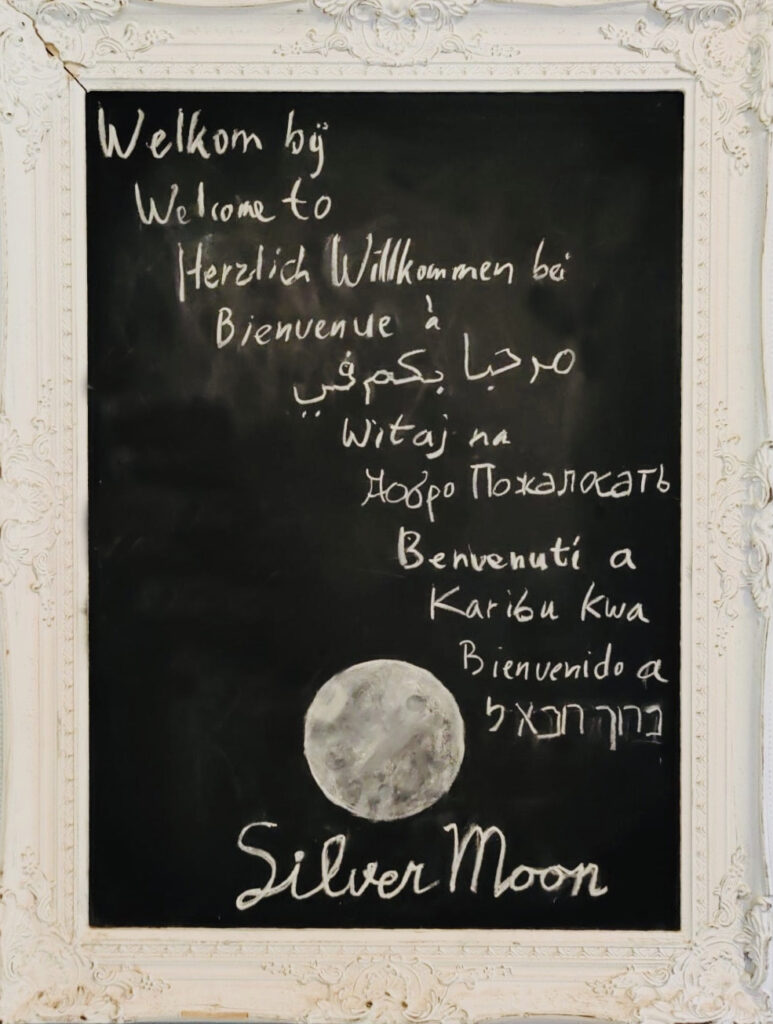 Welkom bij
Welcome to
Herzlich Willkommen bei
Bienvenue à
مرحبا بكم في
Witaj na
Добро Пожаловать
Benvenuti a
Karibu Kwa
Bienvenido a
ברוך חבא ל
Silver Moon